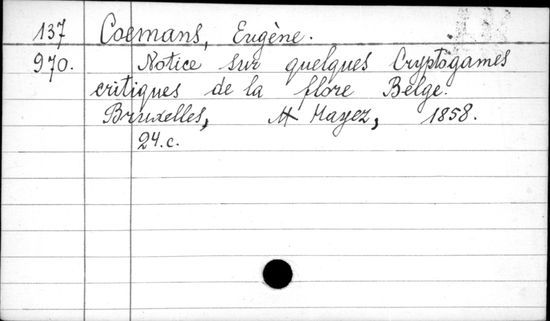 137 Coemans, Eugène.
970. Notice sur quelques Cryptogames
critiques de la flore Belge.
Bruxelles, M Hayez, 1858.
24.c.